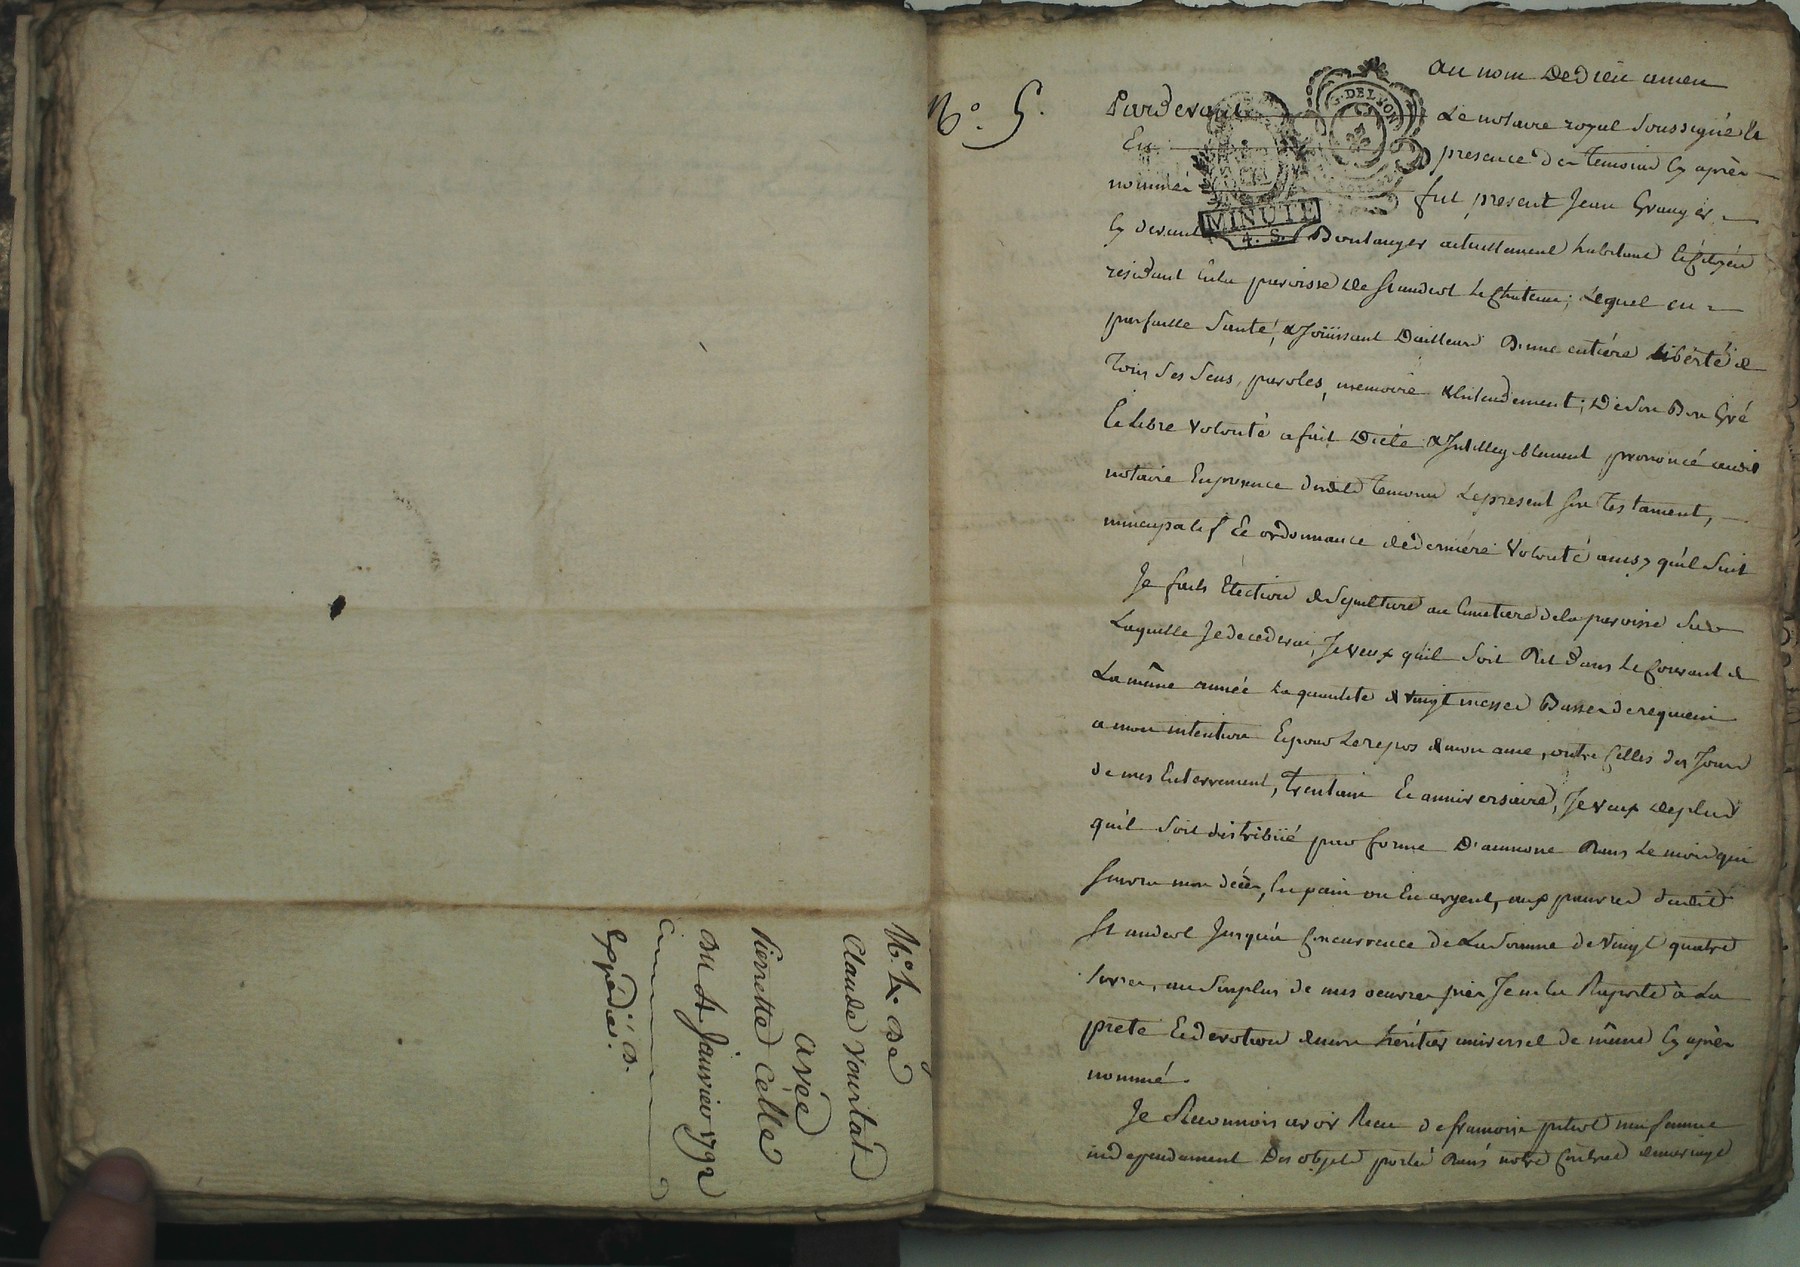 N.o 4. De
Claude Vourlat
avec
Pierrette Celle
Du 4 Janvier 1792
Expédié.
N.o 5.
au nom de dieu amen
Pardevant Le notaire royal soussigné &
En presence des temoins cy après
nommés fut present Jean Granger
MINUTE
4. S.
cy devant Boulanger actuellement habitant & citoyen
residant en la paroisse de st andeol le chateau; Lequel en
parfaitte santé, & Joüissant d'ailleurs d'une entiére liberté de
tous ses sens, paroles, memoire & entendement; De son Bon Gré
Et Libre volonté a fait Dicté & Intelligiblement prononcé audit
notaire En presence desdits temoins Le present son testament,
nuncupatif Et ordonnance de derniére volonté ainsy qu'il suit
Je fais Election de sepulture au Cimetiere de la paroisse sur
Laquelle Je decederai, Je veux qu'il soit Dit dans le courant de
La même année La quantité de vingt messes Basses de requiem
a mon intention Et pour Le repos de mon ame, outre celles des Jours
de mes Enterrement, trentain Et anniversaire, Je veux de plus
qu'il soit distribüé par forme d'aumone Dans Le mois qui
suivra mon décès, En pain ou En argent, aux pauvres dudit
St andeol Jusqu'a Concurrence de La somme de vingt quatre
livres, au surplus de mes oeuvres pies Je m'en Raporte à La
pieté Et devotion de mon héritier universel de même cy après
nommé.
Je Reconnois avoir Recu de francoise ma femme
independament Des objets portés Dans notre contrat de mariage